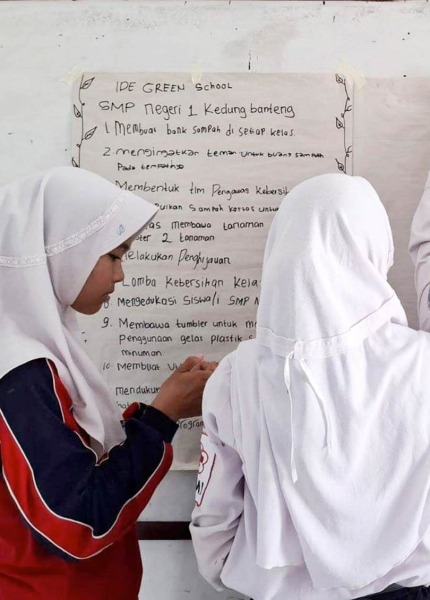 IDE GREEN School
SMP Negeri 1 Kedungbanteng
1. Membuat bank sampah di setiap kelas.
2. mengingatkan teman untuk buang sampah
Pada tempatnya
Membentuk tim Pengawas Kebersih
Sampah kertas untuk
membawa tanaman
2 tanaman
Melakukan Penghijauan
Lomba Kebersihan Kela
8. Mengedukasi Siswa/i SMP N
9. Membawa tumbler untuk me
Penggunaan gelas plastik s
minuman.
10. Membuat
mendukun
Program